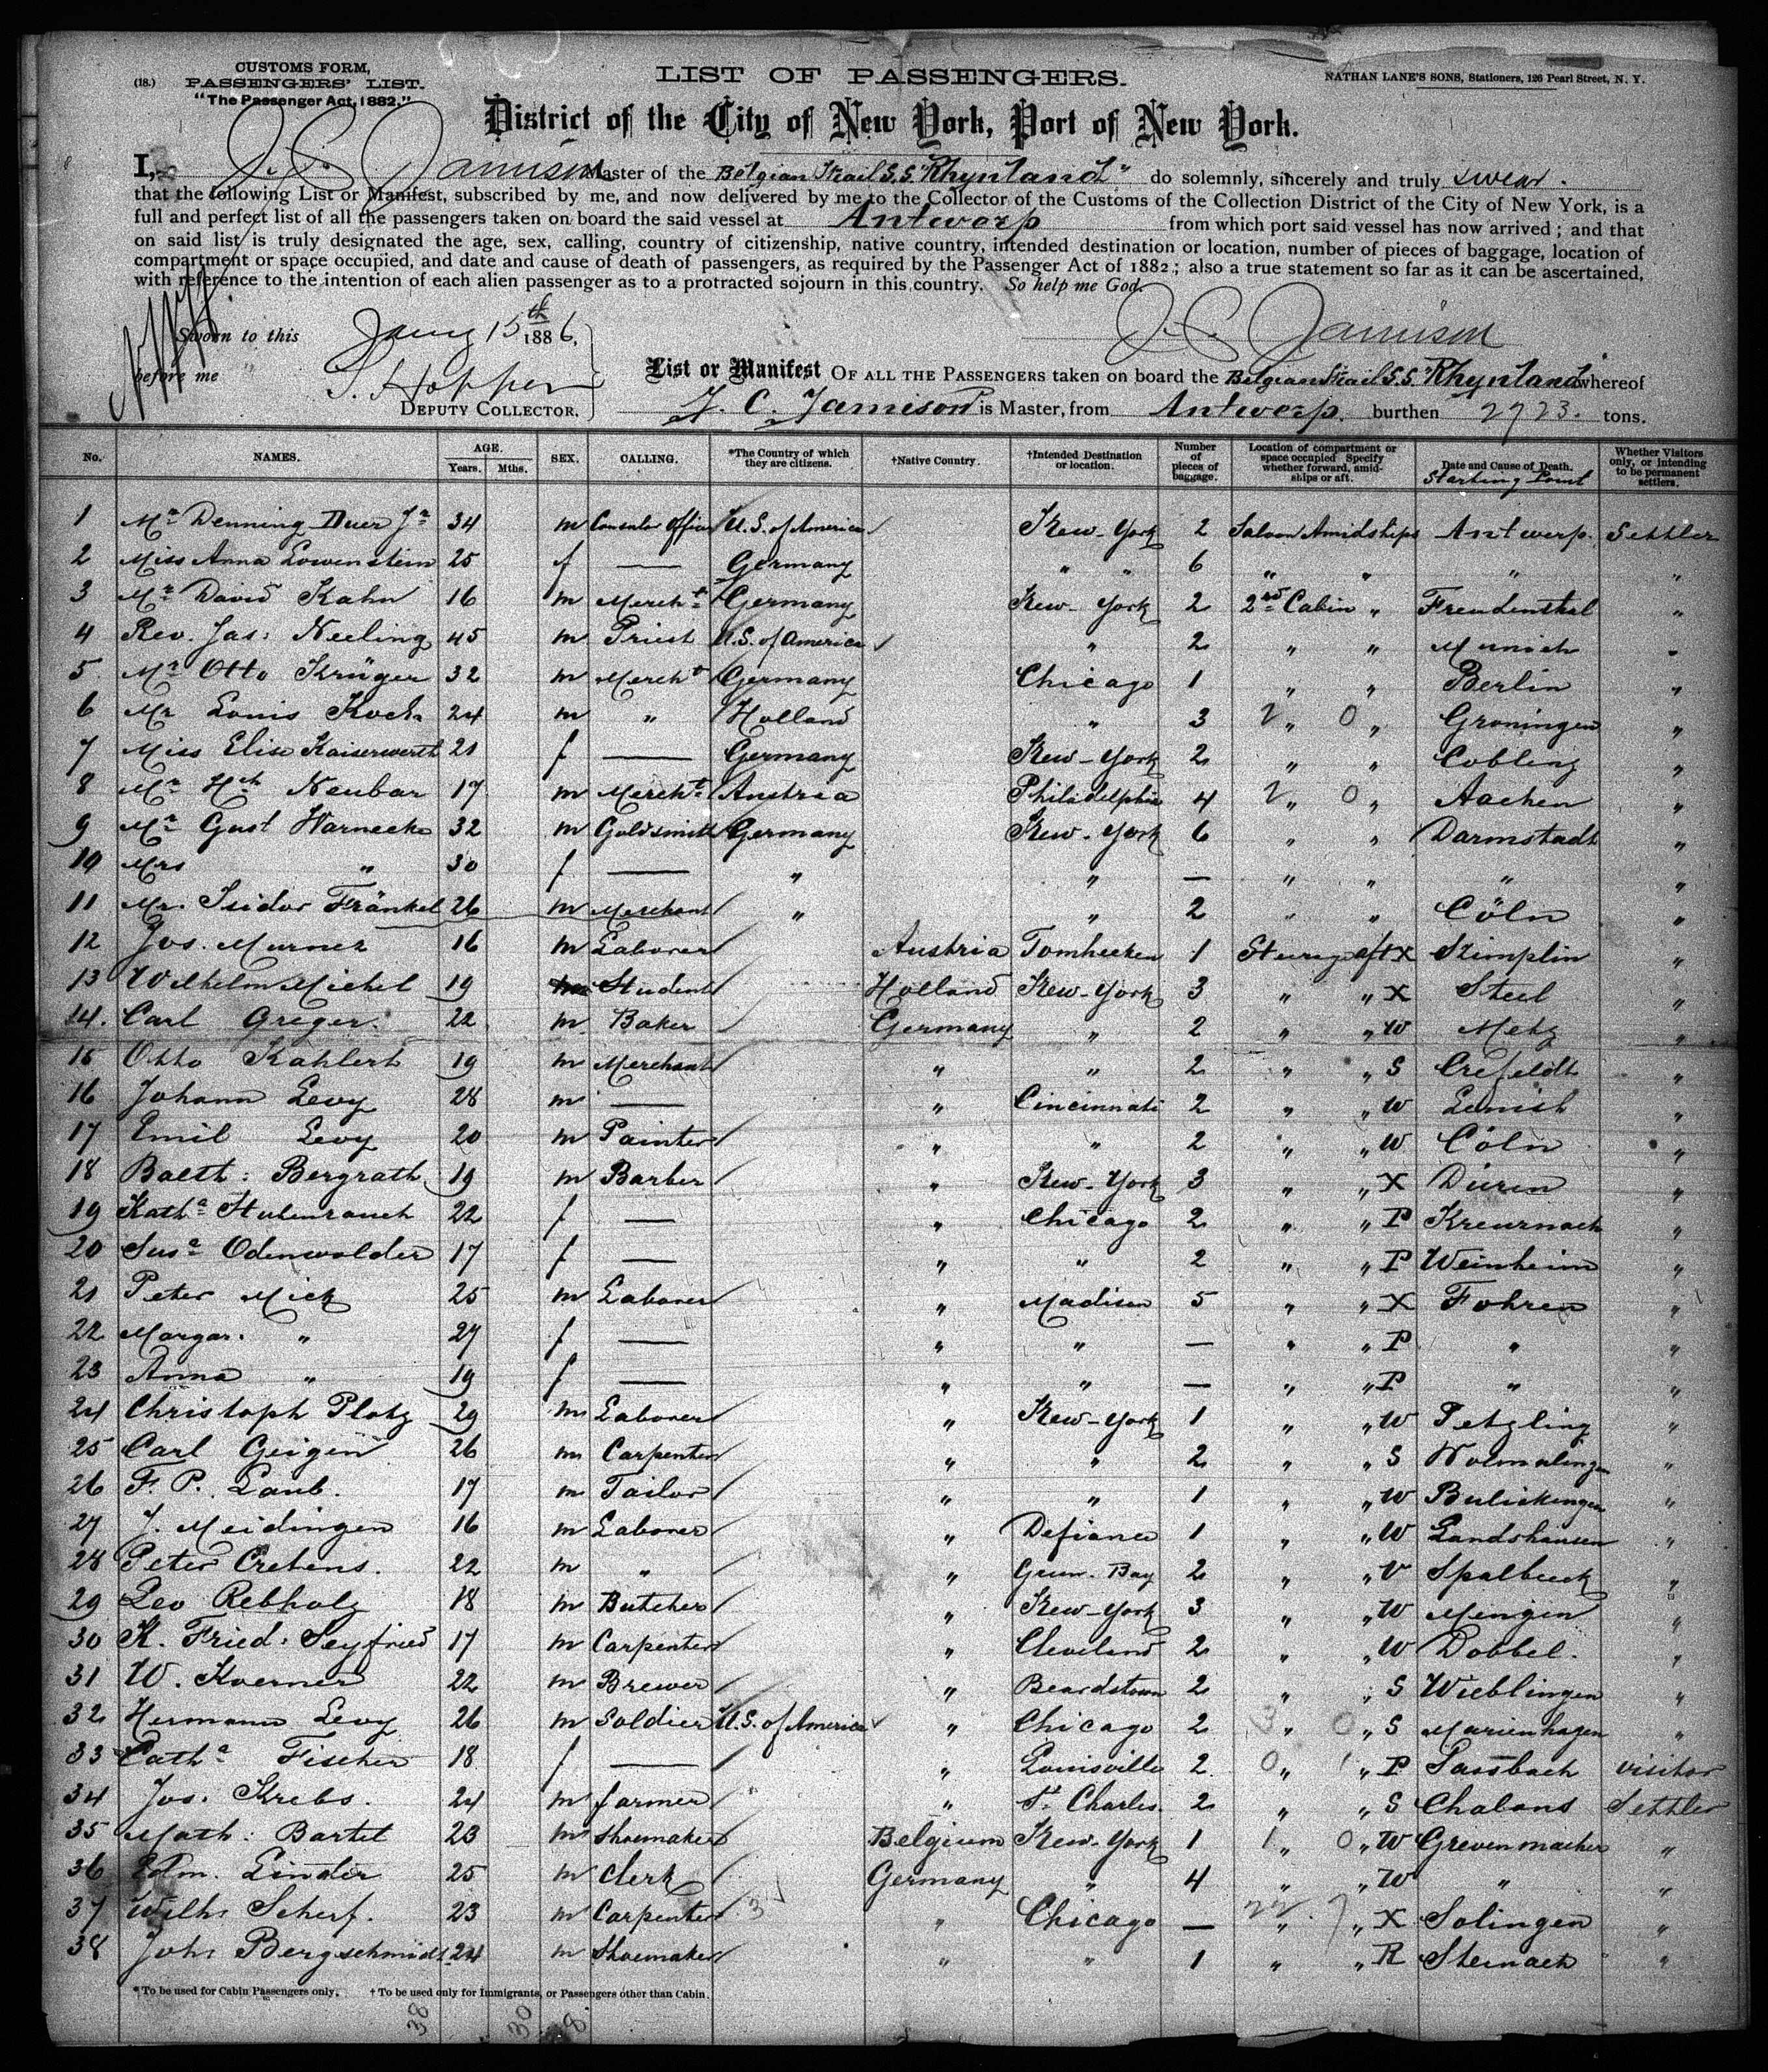 (18.)
CUSTOMS FORM,
PASSENGERS' LIST.
"The Passenger Act, 1882."
LIST OF PASSENGERS.
NATHAN LANE'S SONS, Stationers, 126 Pearl Street, N. Y.
District of the City of New York, Port of New York.
I, J. C. Jamison Master of the Belgian Steam S.S. "Rhynland" do solemnly, sincerely and truly swear.
that the following List or Manifest, subscribed by me, and now delivered by me to the Collector of the Customs of the Collection District of the City of New York, is a
full and perfect list of all the passengers taken on board the said vessel at Antwerp from which port said vessel has now arrived; and that
on said list is truly designated the age, sex, calling, country of citizenship, native country, intended destination or location, number of pieces of baggage, location of
compartment or space occupied, and date and cause of death of passengers, as required by the Passenger Act of 1882; also a true statement so far as it can be ascertained,
with reference to the intention of each alien passenger as to a protracted sojourn in this country. So help me God.
Sworn to this Jany 15th 1886,
J. C. Jamison
before me S. Hopper
DEPUTY COLLECTOR.
List or Manifest OF ALL THE PASSENGERS taken on board the Belgian Steam S.S. "Rhynland" whereof
J. C. Jamison is Master, from Antwerp. burthen 2723. tons.
No. NAMES. AGE. Years. Mths. SEX. CALLING. *The Country of which they are citizens. †Native Country. †Intended Destination or location. Number of pieces of baggage. Location of compartment or space occupied Specify whether forward, amidships or aft. Date and Cause of Death. Starting Point Whether Visitors only, or intending to be permanent settlers.
1 Mr Denning Duer Jr 34 m Consular Officer U.S. of America New-York 2 Saloon Amidships Antwerp. Settler
2 Miss Anna Lowenstein 25 f — Germany " " 6 " " " "
3 Mr David Kahn 16 m Mercht Germany New-York 2 2nd Cabin " Freudenthal "
4 Rev. Jas: Neeling 45 m Priest U.S. of America " 2 " " Munich "
5 Mr Otto Krüger 32 m Mercht Germany Chicago 1 " " Berlin "
6 Mr Louis Koch 24 m " Holland " 3 2 " 0 " Groningen "
7 Miss Elise Kaiserwerth 21 f — Germany New-York 2 " " Cobling "
8 Mr Hch Neubar 17 m Mercht Austria Philadelphia 4 2 " 0 " Aachen "
9 Mr Gust Warnecke 32 m Goldsmith Germany New-York 6 " " Darmstadt "
10 Mrs " 30 f — " " — " " " "
11 Mr. Isidor Fränkel 26 m Merchant " " 2 " " Cöln "
12 Jos. Murner 16 m Laborer Austria Tomhecken 1 Steerage aft X Stimplin "
13 Wilhelm Michel 19 Student Holland New-York 3 " " X Steel "
14. Carl Greger. 22 m Baker Germany " 2 " " W Metz "
15 Otto Kahlert 19 m Merchant " " 2 " " S Crefeldt "
16 Johann Levy 28 m — " Cincinnati 2 " " W "
17 Emil Levy 20 m Painter " " 2 " " W Cöln "
18 Balth: Bergrath 19 m Barber " New-York 3 " " X Düren "
19 Katha Stubenrauch 22 f — " Chicago 2 " " P Kreuznach "
20 Susa Odenwalder 17 f — " " 2 " " P Weinheim "
21 Peter Mick 25 m Laborer " Madison 5 " " X Fohren "
22 Margar. " 27 f — " " — " " P " "
23 Anna " 19 f — " " — " " P " "
24 Christoph Plotz 29 m Laborer " New-York 1 " " W Petzling "
25 Carl Geigen 26 m Carpenter " " 2 " " S "
26 F. P. Laub. 17 m Tailor " " 1 " " W "
27 J. Meidingen 16 m Laborer " Defiance 1 " " W Landshausen "
28 Peter Cretens. 22 m " " Green-Bay 2 " " V Spalbeek "
29 Leo Rebholz 18 m Butcher " New-York 3 " " W Mengen "
30 K. Fried: Seyfried 17 m Carpenter " Cleveland 2 " " W Dobbel. "
31 W. Koerner 22 m Brewer " Beardstown 2 " " S Wieblingen "
32 Hermann Levy 26 m Soldier U.S. of America " Chicago 2 3 " 0 " S Marienhagen "
33 Catha Fischer 18 f — " Louisville 2. 0 " 1 " P Sassbach visitor
34 Jos. Krebs. 24 m farmer " St. Charles. 2 " " S Chalons Settler
35 Math: Bartel 23 m Shoemaker Belgium New-York 1 1 " 0 " W Grevenmacher "
36 Edm. Linder 25 m Clerk Germany " 4 " " W " "
37 Wilh: Scherf. 23 m Carpenter 3 " Chicago — 22 " 7 " X Solingen "
38 Joh: Bergschmidt 24 m Shoemaker " " 1 " " R Steinach "
*To be used for Cabin Passengers only. †To be used only for Immigrants, or Passengers other than Cabin.
38 30 8